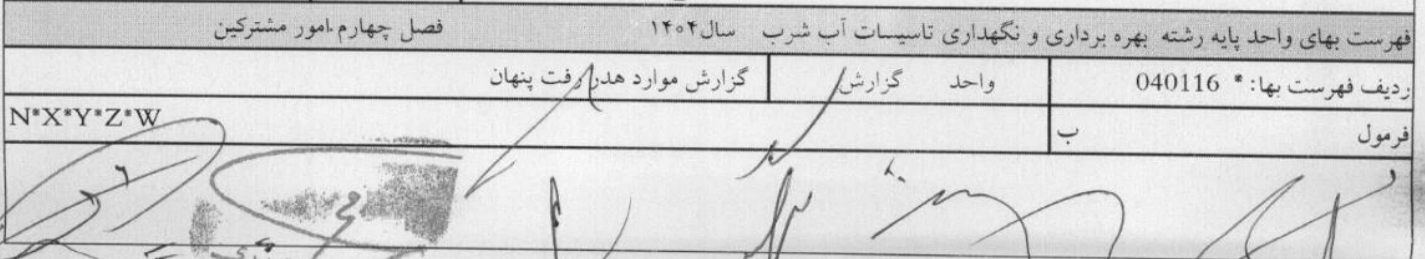 فهرست بهای واحد پایه رشته بهره برداری و نگهداری تاسیسات آب شرب سال۱۴۰۴ فصل چهارم.امور مشترکین
ردیف فهرست بها: * 040116 واحد گزارش گزارش موارد هدر رفت پنهان
فرمول ب N*X*Y*Z*W